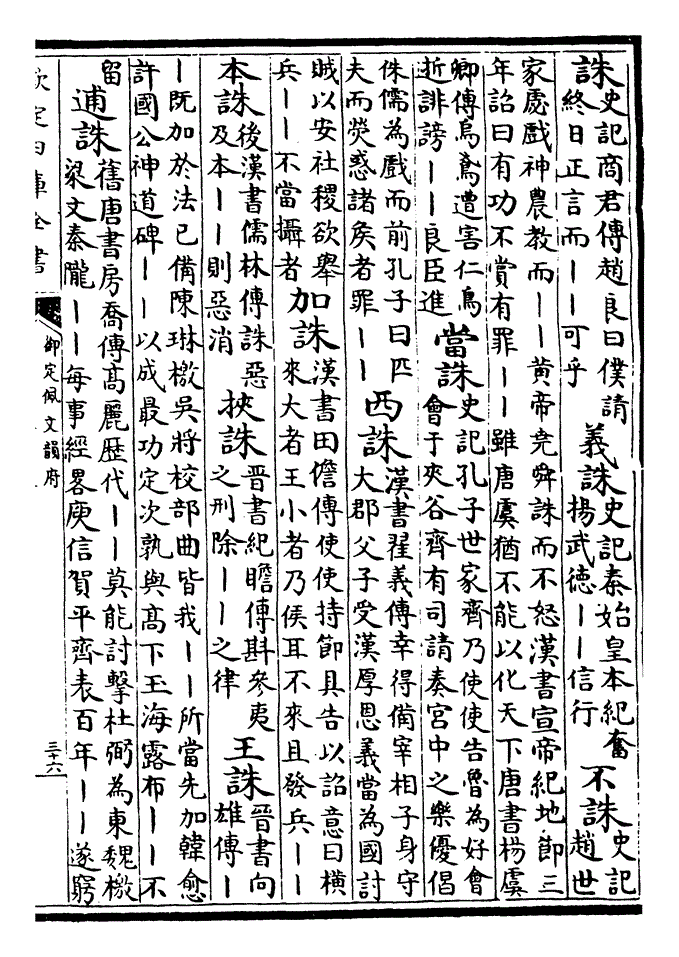 誅史記商君傳趙良曰僕請
終日正言而丨丨可乎
義誅史記秦始皇本紀奮
揚武德丨丨信行
不誅史記
趙世
家虙戲神農教而丨丨黄帝堯舜誅而不怒漢書宣帝紀地節三
年詔曰有功不賞有罪丨丨雖唐虞猶不能以化天下唐書楊虞
卿傳鳥鳶遭害仁鳥
逝誹謗丨丨良臣進
當誅史記孔子世家齊乃使使告魯為好會
會于夾谷齊有司請奏宮中之樂優倡
侏儒為戲而前孔子曰匹
夫而熒惑諸侯者罪丨丨
西誅漢書翟義傳幸得備宰相子身守
大郡父子受漢厚恩義當為國討
賊以安社稷欲舉
兵丨丨不當攝者
加誅漢書田儋傳使使持節具告以詔意曰橫
來大者王小者乃侯耳不來且發兵丨丨
本誅後漢書儒林傳誅惡
及本丨丨則惡消
挾誅晉書紀瞻傳斟參夷
之刑除丨丨之律
王誅晉書向
雄傳丨
丨既加於法已備陳琳檄吳將校部曲皆我丨丨所當先加韓愈
許國公神道碑丨丨以成最功定次孰與髙下玉海露布丨丨不
留
逋誅舊唐書房喬傳髙麗歷代丨丨莫能討擊杜弼為東魏檄
梁文秦隴丨丨每事經畧庾信賀平齊表百年丨丨遂窮
欽定四庫全書
御定佩文韻府
三十六